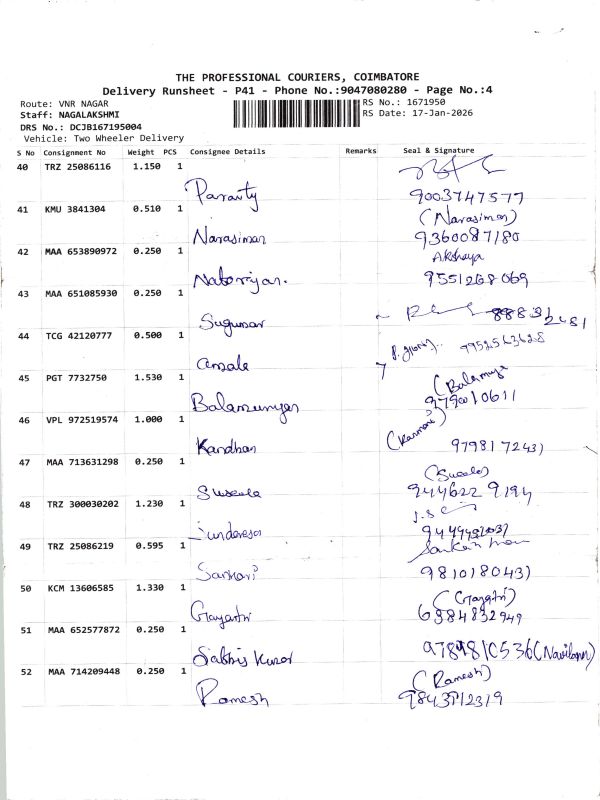 THE PROFESSIONAL COURIERS, COIMBATORE
Delivery Runsheet - P41 - Phone No.:9047080280 - Page No.:4
Route: VNR NAGAR
RS No.: 1671950
Staff: NAGALAKSHMI
RS Date: 17-Jan-2026
DRS No.: DCJB167195004
Vehicle: Two Wheeler Delivery
S No Consignment No Weight PCS Consignee Details Remarks Seal & Signature
40 TRZ 25086116 1.150 1
Paravty 9003747577
41 KMU 3841304 0.510 1
(Narasiman)
Narasiman 9360087180
42 MAA 653890972 0.250 1
Akshaya
9551268069
43 MAA 651085930 0.250 1
Sugumar
44 TCG 42120777 0.500 1
9952563628
Amala
45 PGT 7732750 1.530 1
46 VPL 972519574 1.000 1
Kandhan
47 MAA 713631298 0.250 1
Suseela 944622 9194
48 TRZ 300030202 1.230 1
49 TRZ 25086219 0.595 1
Sankari
50 KCM 13606585 1.330 1
(Gayatri)
Gayatri 6384832949
51 MAA 652577872 0.250 1
52 MAA 714209448 0.250 1
(Ramesh)
Ramesh